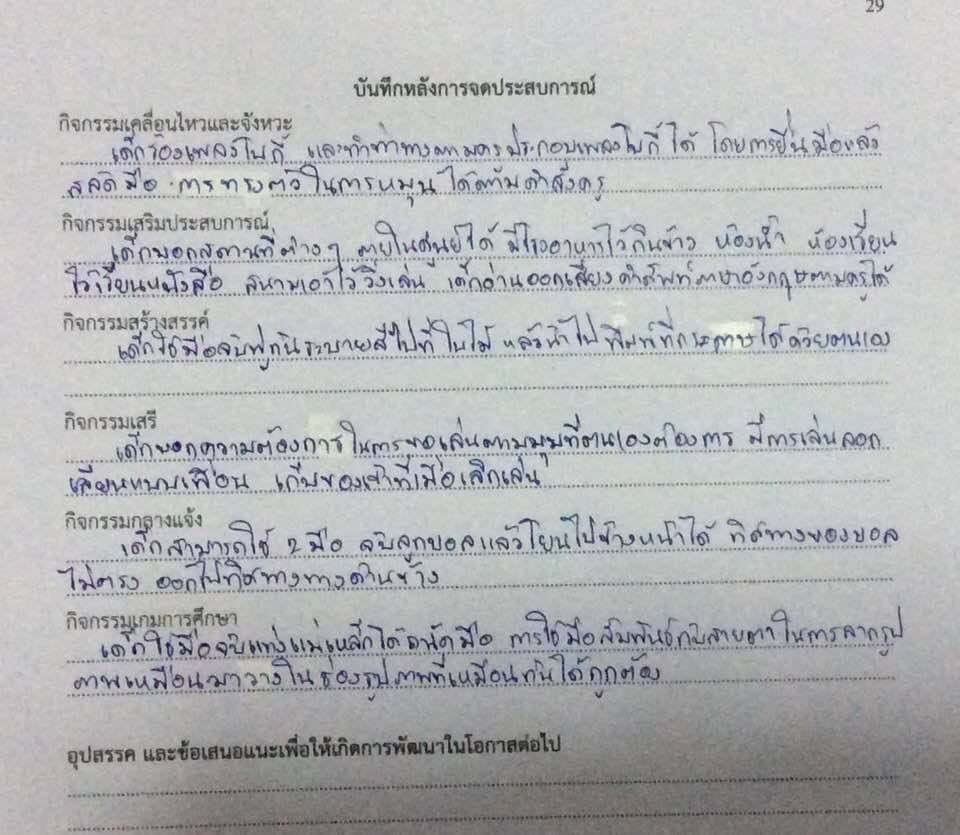 29
บันทึกหลังการจดประสบการณ์
กิจกรรมเคลื่อนไหวและจังหวะ
เด็กร้องเพลงโบกี้ และทำท่าทางตามครูประกอบเพลงโบกี้ได้ โดยการยื่นมือแล้ว
สลัดมือ การทรงตัวในการหมุนได้ตามคำสั่งครู
กิจกรรมเสริมประสบการณ์
เด็กบอกสถานที่ต่างๆ ภายในศูนย์ได้ มีโรงอาหารไว้กินข้าว ห้องน้ำ ห้องเรียน
ไว้เรียนหนังสือ สนามเอาไว้วิ่งเล่น เด็กอ่านออกเสียงคำศัพท์ภาษาอังกฤษตามครูได้
กิจกรรมสร้างสรรค์
เด็กใช้มือจับพู่กันระบายสีไปที่ใบไม้ แล้วนำไปพิมพ์ที่กระดาษได้ด้วยตนเอง
กิจกรรมเสรี
เด็กบอกความต้องการในการขอเล่นตามมุมที่ตนเองต้องการ มีการเล่นลอก
เลียนแบบเพื่อน เก็บของเข้าที่เมื่อเลิกเล่น
กิจกรรมกลางแจ้ง
เด็กสามารถใช้ 2 มือ จับลูกบอลแล้วโยนไปข้างหน้าได้ ทิศทางของบอล
ไม่ตรง ออกไปทิศทางทางด้านข้าง
กิจกรรมเกมการศึกษา
เด็กใช้มือจับแท่งแม่เหล็กได้ถนัดมือ การใช้มือสัมพันธ์กับสายตาในการลากรูป
ภาพเหมือนมาวางในช่องรูปภาพที่เหมือนกันได้ถูกต้อง
อุปสรรค และข้อเสนอแนะเพื่อให้เกิดการพัฒนาในโอกาสต่อไป